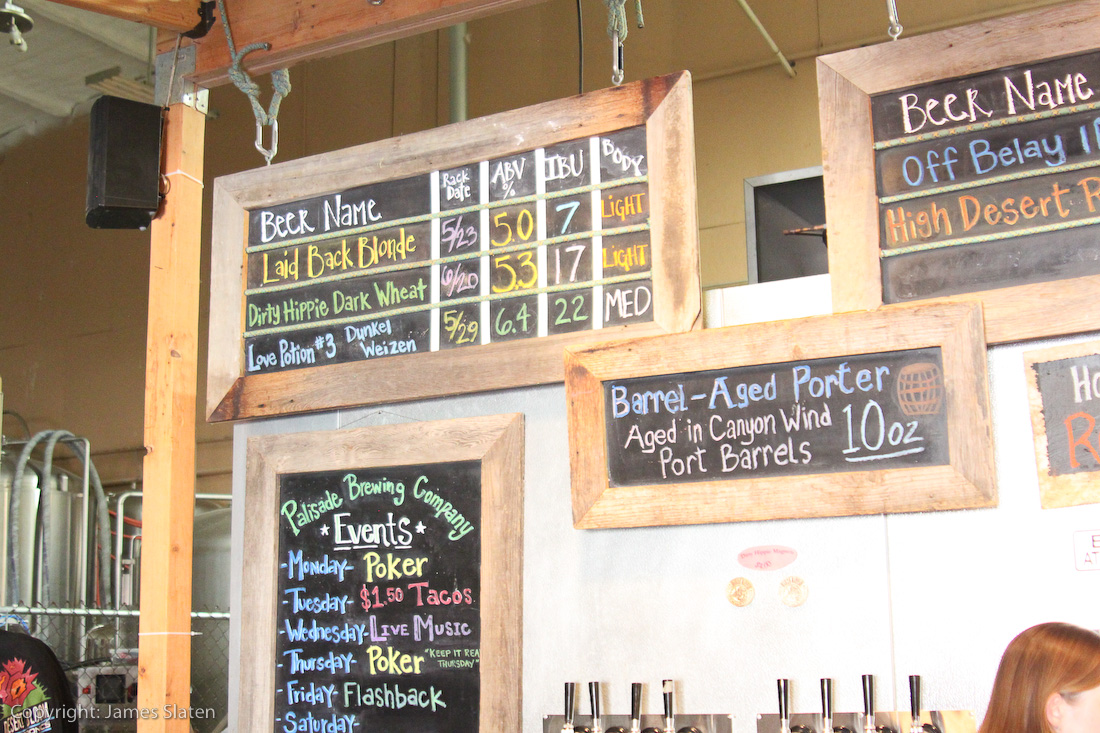 Beer Name Rack Date ABV % IBU Body
Laid Back Blonde 5/23 5.0 7 Light
Dirty Hippie Dark Wheat 6/20 5.3 17 Light
Love Potion #3 Dunkel Weizen 5/29 6.4 22 Med
Beer Name
Off Belay
High Desert
Barrel-Aged Porter
Aged in Canyon Wind
Port Barrels
10oz
Palisade Brewing Company
*Events*
-Monday- Poker
-Tuesday- $1.50 Tacos
-Wednesday- Live Music
-Thursday- Poker "Keep it Real Thursday"
-Friday- Flashback
-Saturday-
Copyright: James Slaten